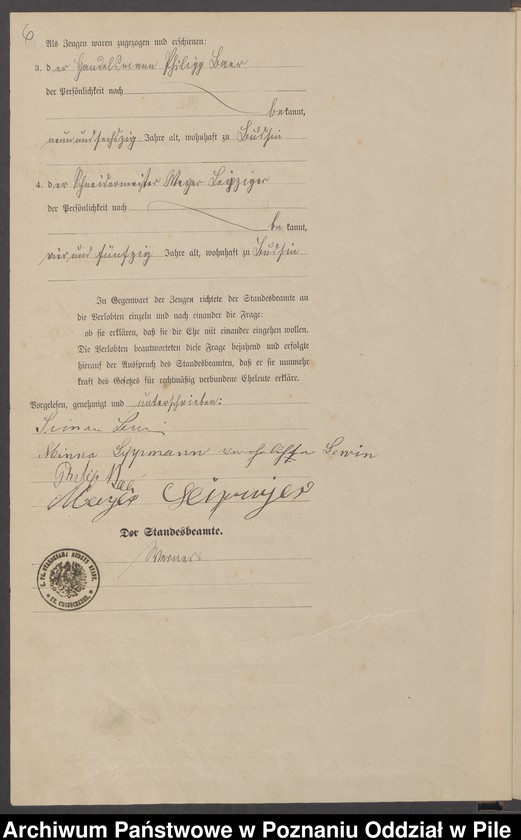 6
Als Zeugen waren zugezogen und erschienen:
3. der Handelsmann Philipp Baer
der Persönlichkeit nach
bekannt,
neun und sechszig Jahre alt, wohnhaft zu Budsin
4. der Schneidermeister Meyer Leipziger
der Persönlichkeit nach
be kannt,
vier und fünfzig Jahre alt, wohnhaft zu Budsin
In Gegenwart der Zeugen richtete der Standesbeamte an
die Verlobten einzeln und nach einander die Frage:
ob sie erklären, daß sie die Ehe mit einander eingehen wollen.
Die Verlobten beantworteten diese Frage bejahend und erfolgte
hierauf der Ausspruch des Standesbeamten, daß er sie nunmehr
kraft des Gesetzes für rechtmäßig verbundene Eheleute erkläre.
Vorgelesen, genehmigt und unterschrieben:
Simon Lewin
Minna Lippmann verehelichte Lewin
Philip Baer
Mayer Leipziger
Der Standesbeamte.
Werner
K. PR. STANDESAMT BUDSIN STADT.
KR. CHODZIESEN.
Archiwum Państwowe w Poznaniu Oddział w Pile